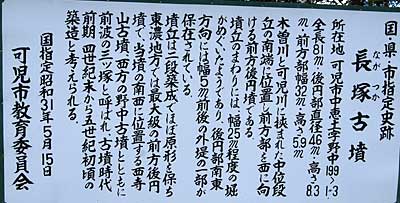 国・県・市指定史跡
長塚古墳
ながつか
所在地 可児市中恵土字野中199-1~3
全長81m・後円部直径46m・高さ8.3
m・前方部幅32m・高さ5.9m
木曽川と可児川に挟まれた中位段
丘の南端に位置し前方部を西に向
ける前方後円墳である。
墳丘のまわりには幅25m程度の堀
がめぐっていたようであり、後円部南東
方向には幅5m前後の外堤の一部が
保存されている。
墳丘は二段築成でほぼ原形を保ち
東濃地方では最大級の前方後円
墳で、当墳の南西に位置する西寺
山古墳、西方の野中古墳とともに
前波の三ツ塚と呼ばれ、古墳時代
前期、四世紀末から五世紀初頃の
築造と考えられる。
国指定昭和31年5月15日
可児市教育委員会